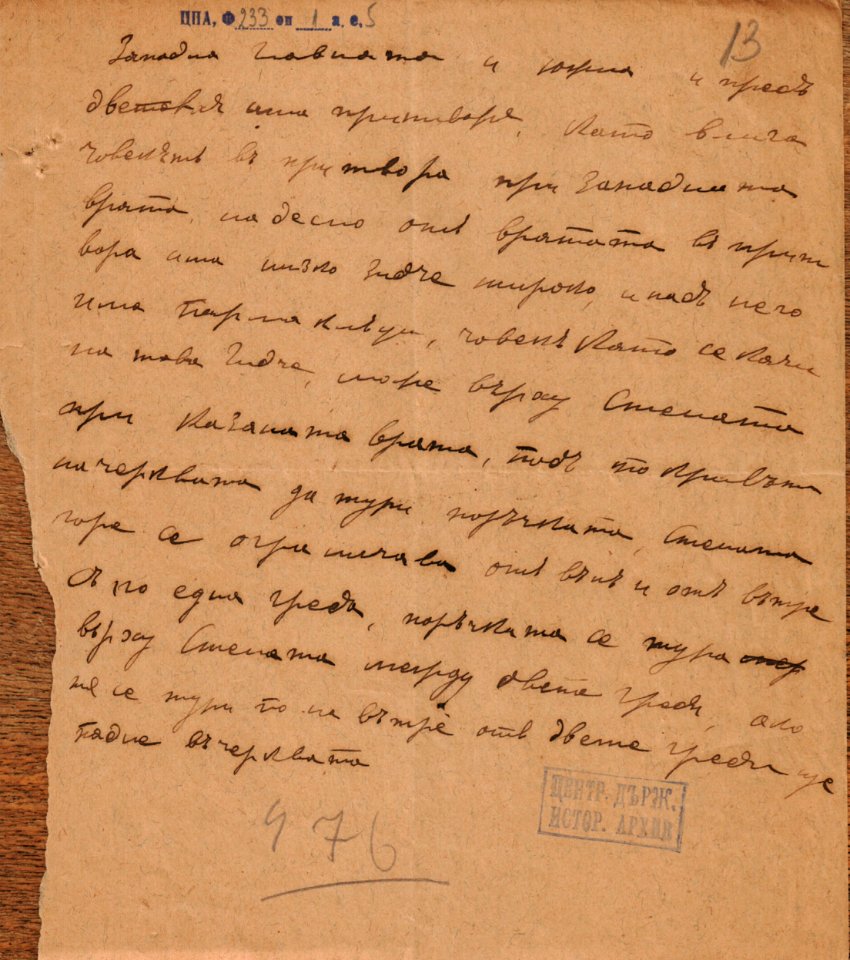 ЦПА, Ф 233 оп 1 а. е. 5
13
Западна главната и южна и предъ
двете има притворя. Като влиза
човекътъ въ притвора при западната
врата, на десно отъ вратата въ прит
вора има низко зидче широко, и надъ него
има пармаклъци, човекъ като се качи
на това зидче, може върху стената
при казаната врата, подъ покривътъ
на черквата да тури поръчката, стената
горе се ограничава отъ вънъ и отъ вътре
съ по една греда, поръчката се тура
върху стената между двете греди, ако
не се тури по на вътре отъ двете греди ще
падне въ черквата
976
ЦЕНТР. ДЪРЖ.
ИСТОР. АРХИВ